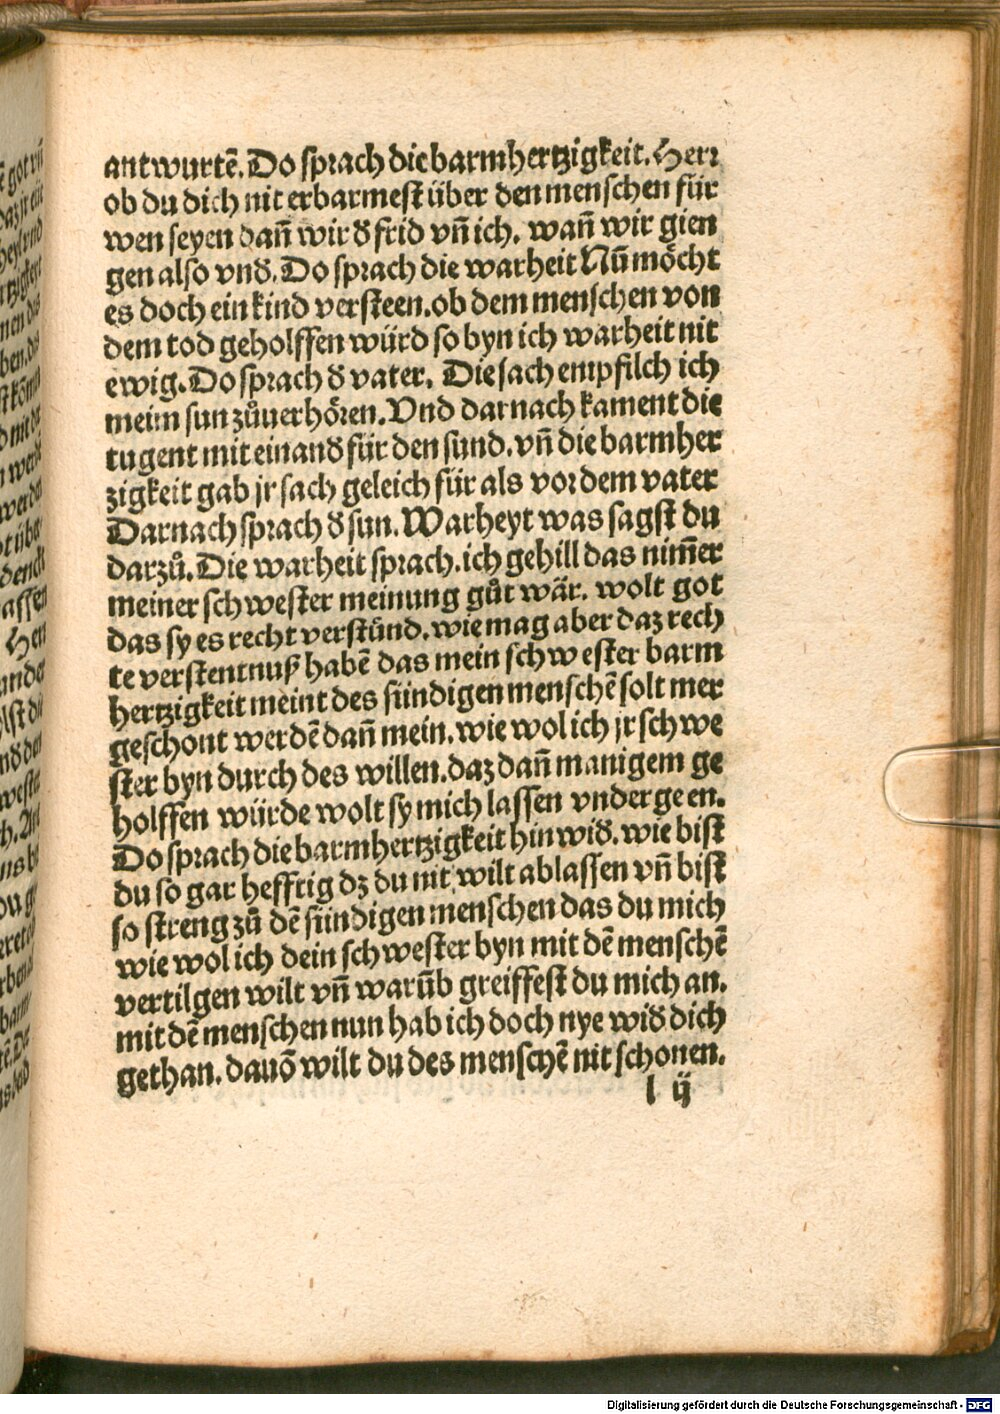 antwurtē. Do sprach die barmhertzigkeit. Herr
ob du dich nit erbarmest über den menschen für
wen seyen dañ wir ď frid vñ ich. wañ wir gien
gen also vnď. Do sprach die warheit Nũ möcht
es doch ein kind versteen. ob dem menschen von
dem tod geholffen würd so byn ich warheit nit
ewig. Do sprach ď vater. Die sach empfilch ich
meim sun zůuerhören. Vnd darnach kament die
tugent mit einanď für den sund. vñ die barmher
zigkeit gab jr sach geleich für als vor dem vater
Darnach sprach ď sun. Warheyt was sagst du
darzů. Die warheit sprach. ich gehill das nim̄er
meiner schwester meinung gůt wär. wolt got
das sy es recht verstünd. wie mag aber daz rech
te verstentnuß habē das mein schwester barm
hertzigkeit meint des sündigen menschē solt mer
geschont werdē dañ mein. wie wol ich jr schwe
ster byn durch des willen. daz dañ manigem ge
holffen würde wolt sy mich lassen vndergeen.
Do sprach die barmhertzigkeit hin wiď. wie bist
du so gar hefftig dz du nit wilt ablassen vñ bist
so streng zů dē sündigen menschen das du mich
wie wol ich dein schwester byn mit dē menschē
vertilgen wilt vñ warũb greiffest du mich an.
mit dē menschen nun hab ich doch nye wiď dich
gethan. dauō wilt du des menschē nit schonen.
l ij
Digitalisierung gefördert durch die Deutsche Forschungsgemeinschaft - DFG